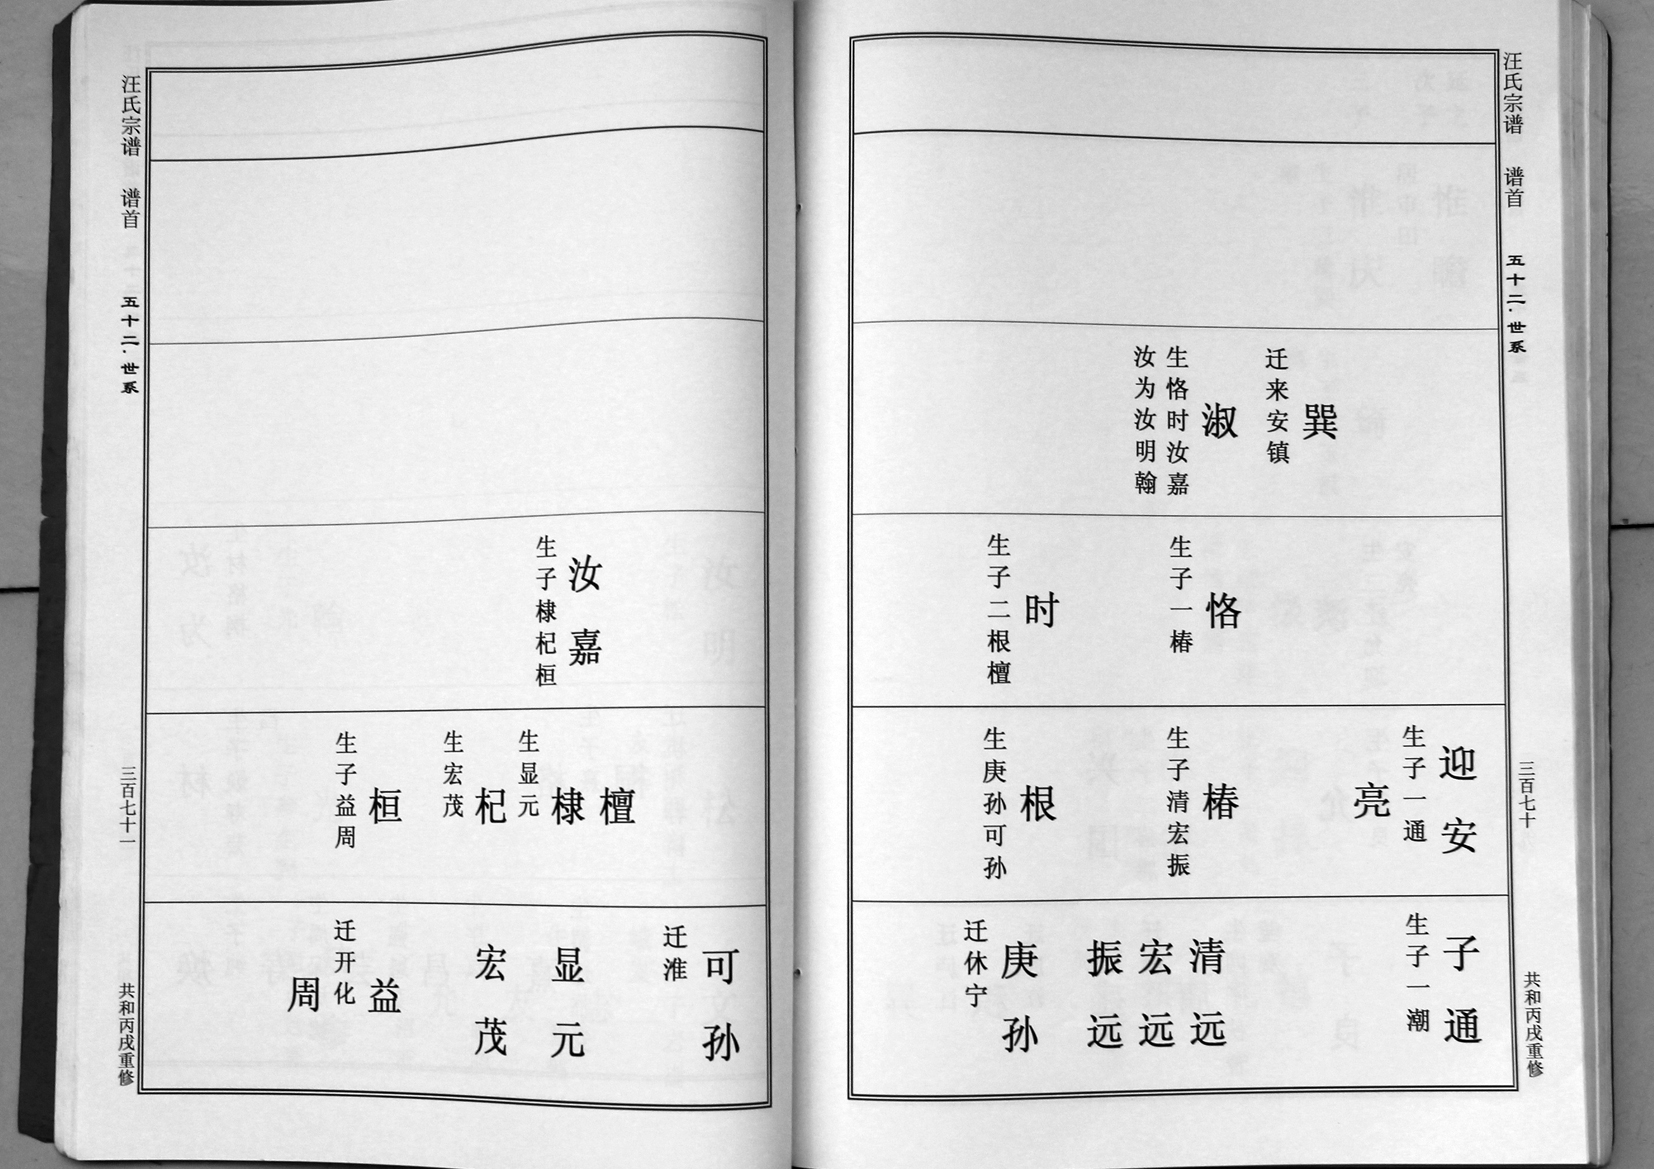 汪氏宗谱 谱首 五十二·世系 三百七十 共和丙戌重修
巽
迁来安镇
淑
生恪时汝嘉
汝为汝明翰
恪
生子一椿
时
生子二根檀
迎安
生子一通
亮
椿
生子清宏振
根
生庚孙可孙
子通
生子一潮
清远
宏远
振远
庚孙
迁休宁
汪氏宗谱 谱首 五十二·世系 三百七十一 共和丙戌重修
汝嘉
生子棣杞桓
檀
棣
生显元
杞
生宏茂
桓
生子益周
可孙
迁淮
显元
宏茂
益
迁开化
周